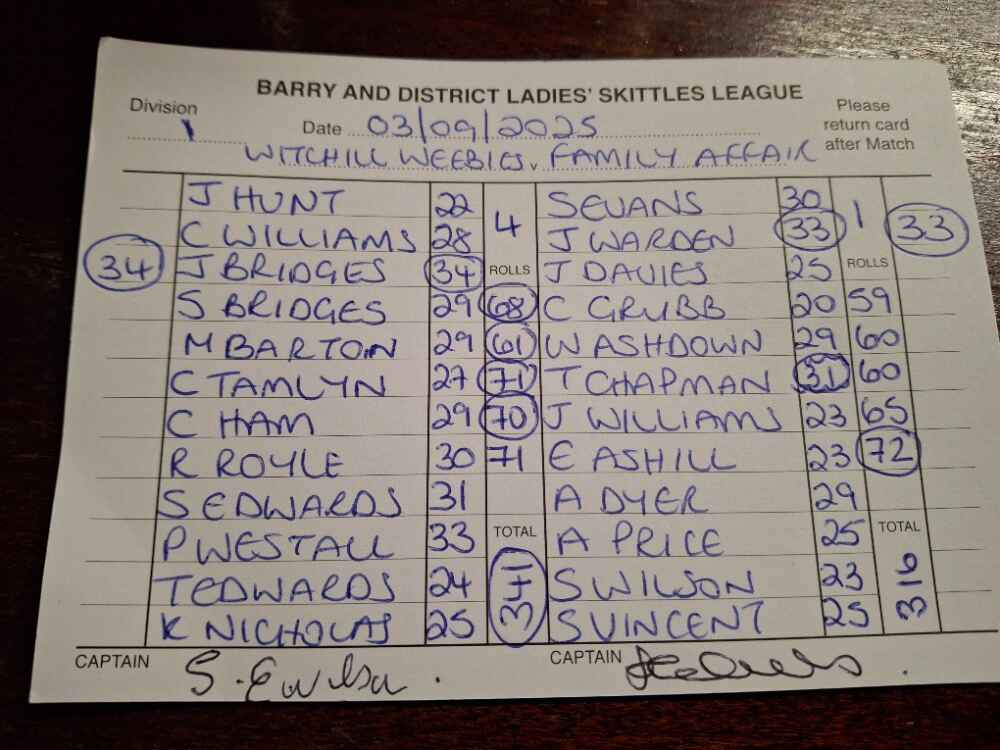 BARRY AND DISTRICT LADIES' SKITTLES LEAGUE
Division 1
Date 03/09/2025
Please return card after Match
WITCHILL WEEBIES v. FAMILY AFFAIR
J HUNT 22 4 S EVANS 30 1
C WILLIAMS 28 J WARDEN 33 33
34 J BRIDGES 34 ROLLS J DAVIES 25 ROLLS
S BRIDGES 29 68 C GRUBB 20 59
M BARTON 29 61 W ASHDOWN 29 60
C TAMLYN 27 71 T CHAPMAN 31 60
C HAM 29 70 J WILLIAMS 23 65
R ROYLE 30 71 E ASHILL 23 72
S EDWARDS 31 A DYER 29
P WESTALL 33 TOTAL A PRICE 25 TOTAL
T EDWARDS 24 341 S WILSON 23 316
K NICHOLAS 25 S VINCENT 25
CAPTAIN S. CAPTAIN